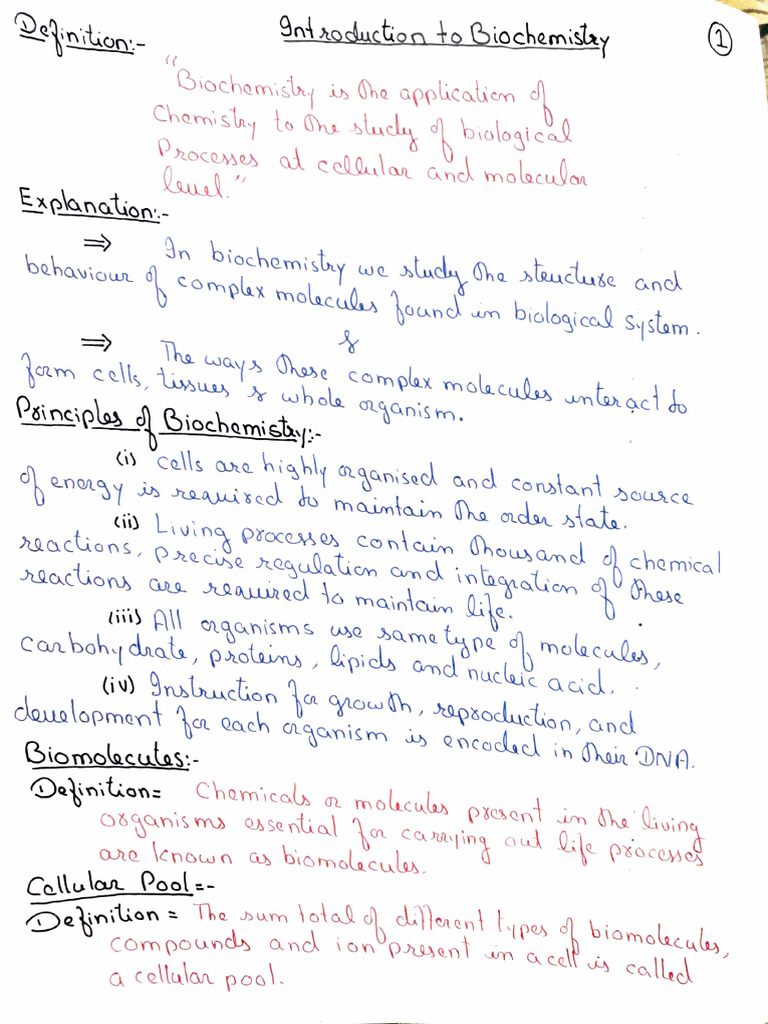 Introduction to Biochemistry
1
Definition:-
"Biochemistry is the application of
Chemistry to the study of biological
Processes at cellular and molecular
level."
Explanation:-
⇒ In biochemistry we study the structure and
behaviour of complex molecules found in biological system.
&
⇒ The ways these complex molecules interact to
form cells, tissues & whole organism.
Principles of Biochemistry:-
(i) cells are highly organised and constant source
of energy is required to maintain the order state.
(ii) Living processes contain thousand of chemical
reactions, precise regulation and integration of these
reactions are required to maintain life.
(iii) All organisms use same type of molecules,
carbohydrate, proteins, lipids and nucleic acid.
(iv) Instruction for growth, reproduction, and
development for each organism is encoded in their DNA.
Biomolecutes:-
Definition= Chemicals or molecules present in the living
organisms essential for carrying out life processes
are known as biomolecules.
Cellular Pool=-
Definition = The sum total of different types of biomolecules,
compounds and ion present in a cell is called
a cellular pool.